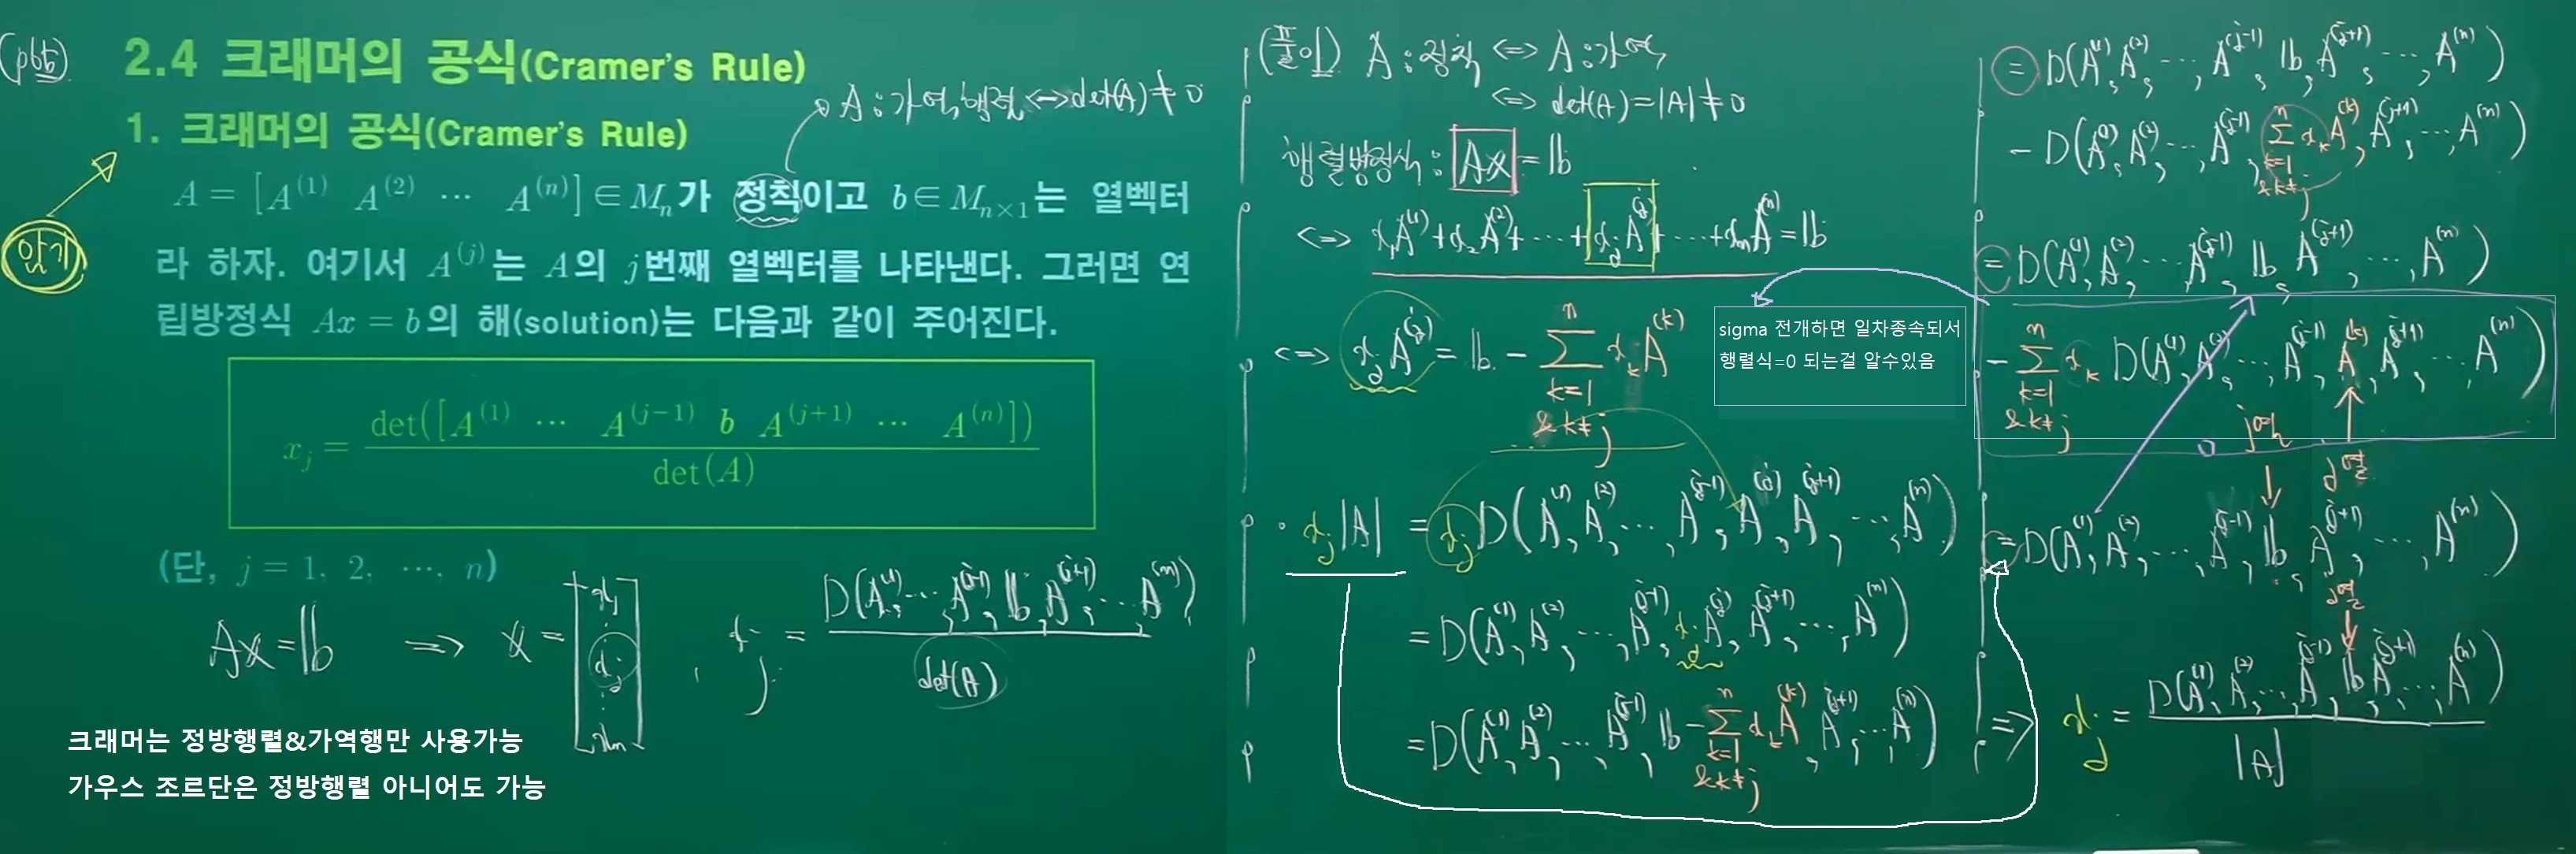 (p66)
2.4 크래머의 공식(Cramer's Rule)
A : 가역행렬 <=> det(A) ≠ 0
1. 크래머의 공식(Cramer's Rule)
암기
A = [A^(1) A^(2) ⋯ A^(n)] ∈ M_n 가 정칙이고 b ∈ M_{n×1} 는 열벡터
라 하자. 여기서 A^(j) 는 A의 j번째 열벡터를 나타낸다. 그러면 연
립방정식 Ax = b의 해(solution)는 다음과 같이 주어진다.
x_j = det([A^(1) ⋯ A^(j-1) b A^(j+1) ⋯ A^(n)]) / det(A)
(단, j = 1, 2, ⋯, n)
Ax = b => x = [x_1 ⋮ x_j ⋮ x_n], x_j = D(A^(1), ⋯, A^(j-1), b, A^(j+1), ⋯, A^(n)) / det(A)
크래머는 정방행렬&가역행만 사용가능
가우스 조르단은 정방행렬 아니어도 가능
(풀이) A : 정칙 <=> A : 가역
<=> det(A) = |A| ≠ 0
행렬방정식 : Ax = b
<=> x_1 A^(1) + x_2 A^(2) + ⋯ + x_j A^(j) + ⋯ + x_n A^(n) = b
<=> x_j A^(j) = b - Σ_{k=1 & k≠j}^n x_k A^(k)
· x_j |A| = x_j D(A^(1), A^(2), ⋯, A^(j-1), A^(j), A^(j+1), ⋯, A^(n))
= D(A^(1), A^(2), ⋯, A^(j-1), x_j A^(j), A^(j+1), ⋯, A^(n))
= D(A^(1), A^(2), ⋯, A^(j-1), b - Σ_{k=1 & k≠j}^n x_k A^(k), A^(j+1), ⋯, A^(n))
= D(A^(1), A^(2), ⋯, A^(j-1), b, A^(j+1), ⋯, A^(n))
- D(A^(1), A^(2), ⋯, A^(j-1), Σ_{k=1 & k≠j}^n x_k A^(k), A^(j+1), ⋯, A^(n))
= D(A^(1), A^(2), ⋯, A^(j-1), b, A^(j+1), ⋯, A^(n))
sigma 전개하면 일차종속되서
행렬식=0 되는걸 알수있음
- Σ_{k=1 & k≠j}^n x_k D(A^(1), A^(2), ⋯, A^(j-1), A^(k), A^(j+1), ⋯, A^(n))
0
j열
= D(A^(1), A^(2), ⋯, A^(j-1), b, A^(j+1), ⋯, A^(n))
j열
=> x_j = D(A^(1), A^(2), ⋯, A^(j-1), b, A^(j+1), ⋯, A^(n)) / |A|